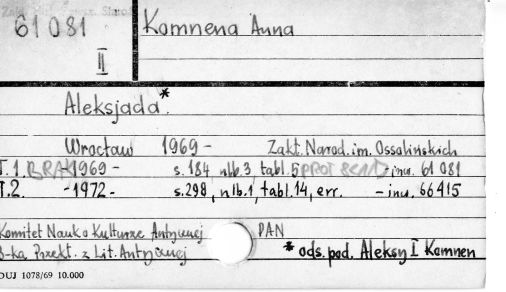 61081 Komnena Anna
II
Aleksjada*
Wrocław 1969 - Zakł. Narod. im. Ossolińskich
T.1. BRAK -1969- s. 184, nlb. 3, tabl. 5 - inw. 61 081
T.2. -1972- s. 298, nlb. 1, tabl. 14, err. - inw. 66415
Komitet Nauk o Kulturze Antycznej PAN
B-ka Przekł. z Lit. Antycznej * ods. pod. Aleksy I Komnen
DUJ 1078/69 10.000